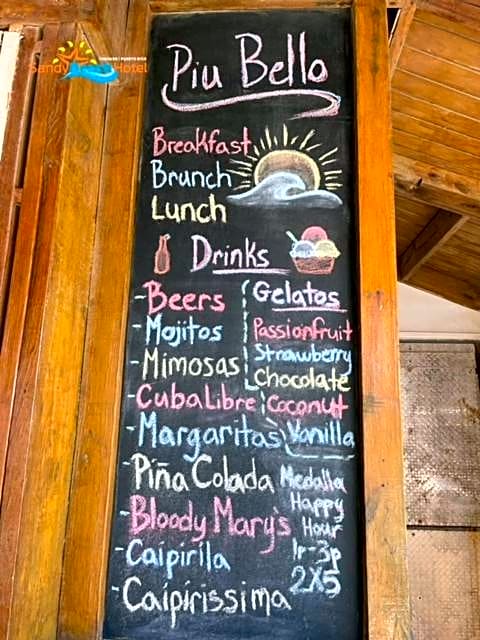 Sandy Hotel
Piu Bello
Breakfast
Brunch
Lunch
Drinks
-Beers
-Mojitos
-Mimosas
-Cuba Libre
-Margaritas
-Piña Colada
-Bloody Mary's
-Caipirila
-Caipirissima
Gelatos
Passionfruit
Strawberry
Chocolate
Coconut
Vanilla
Medalla
Happy
Hour
1p-3p
2X5